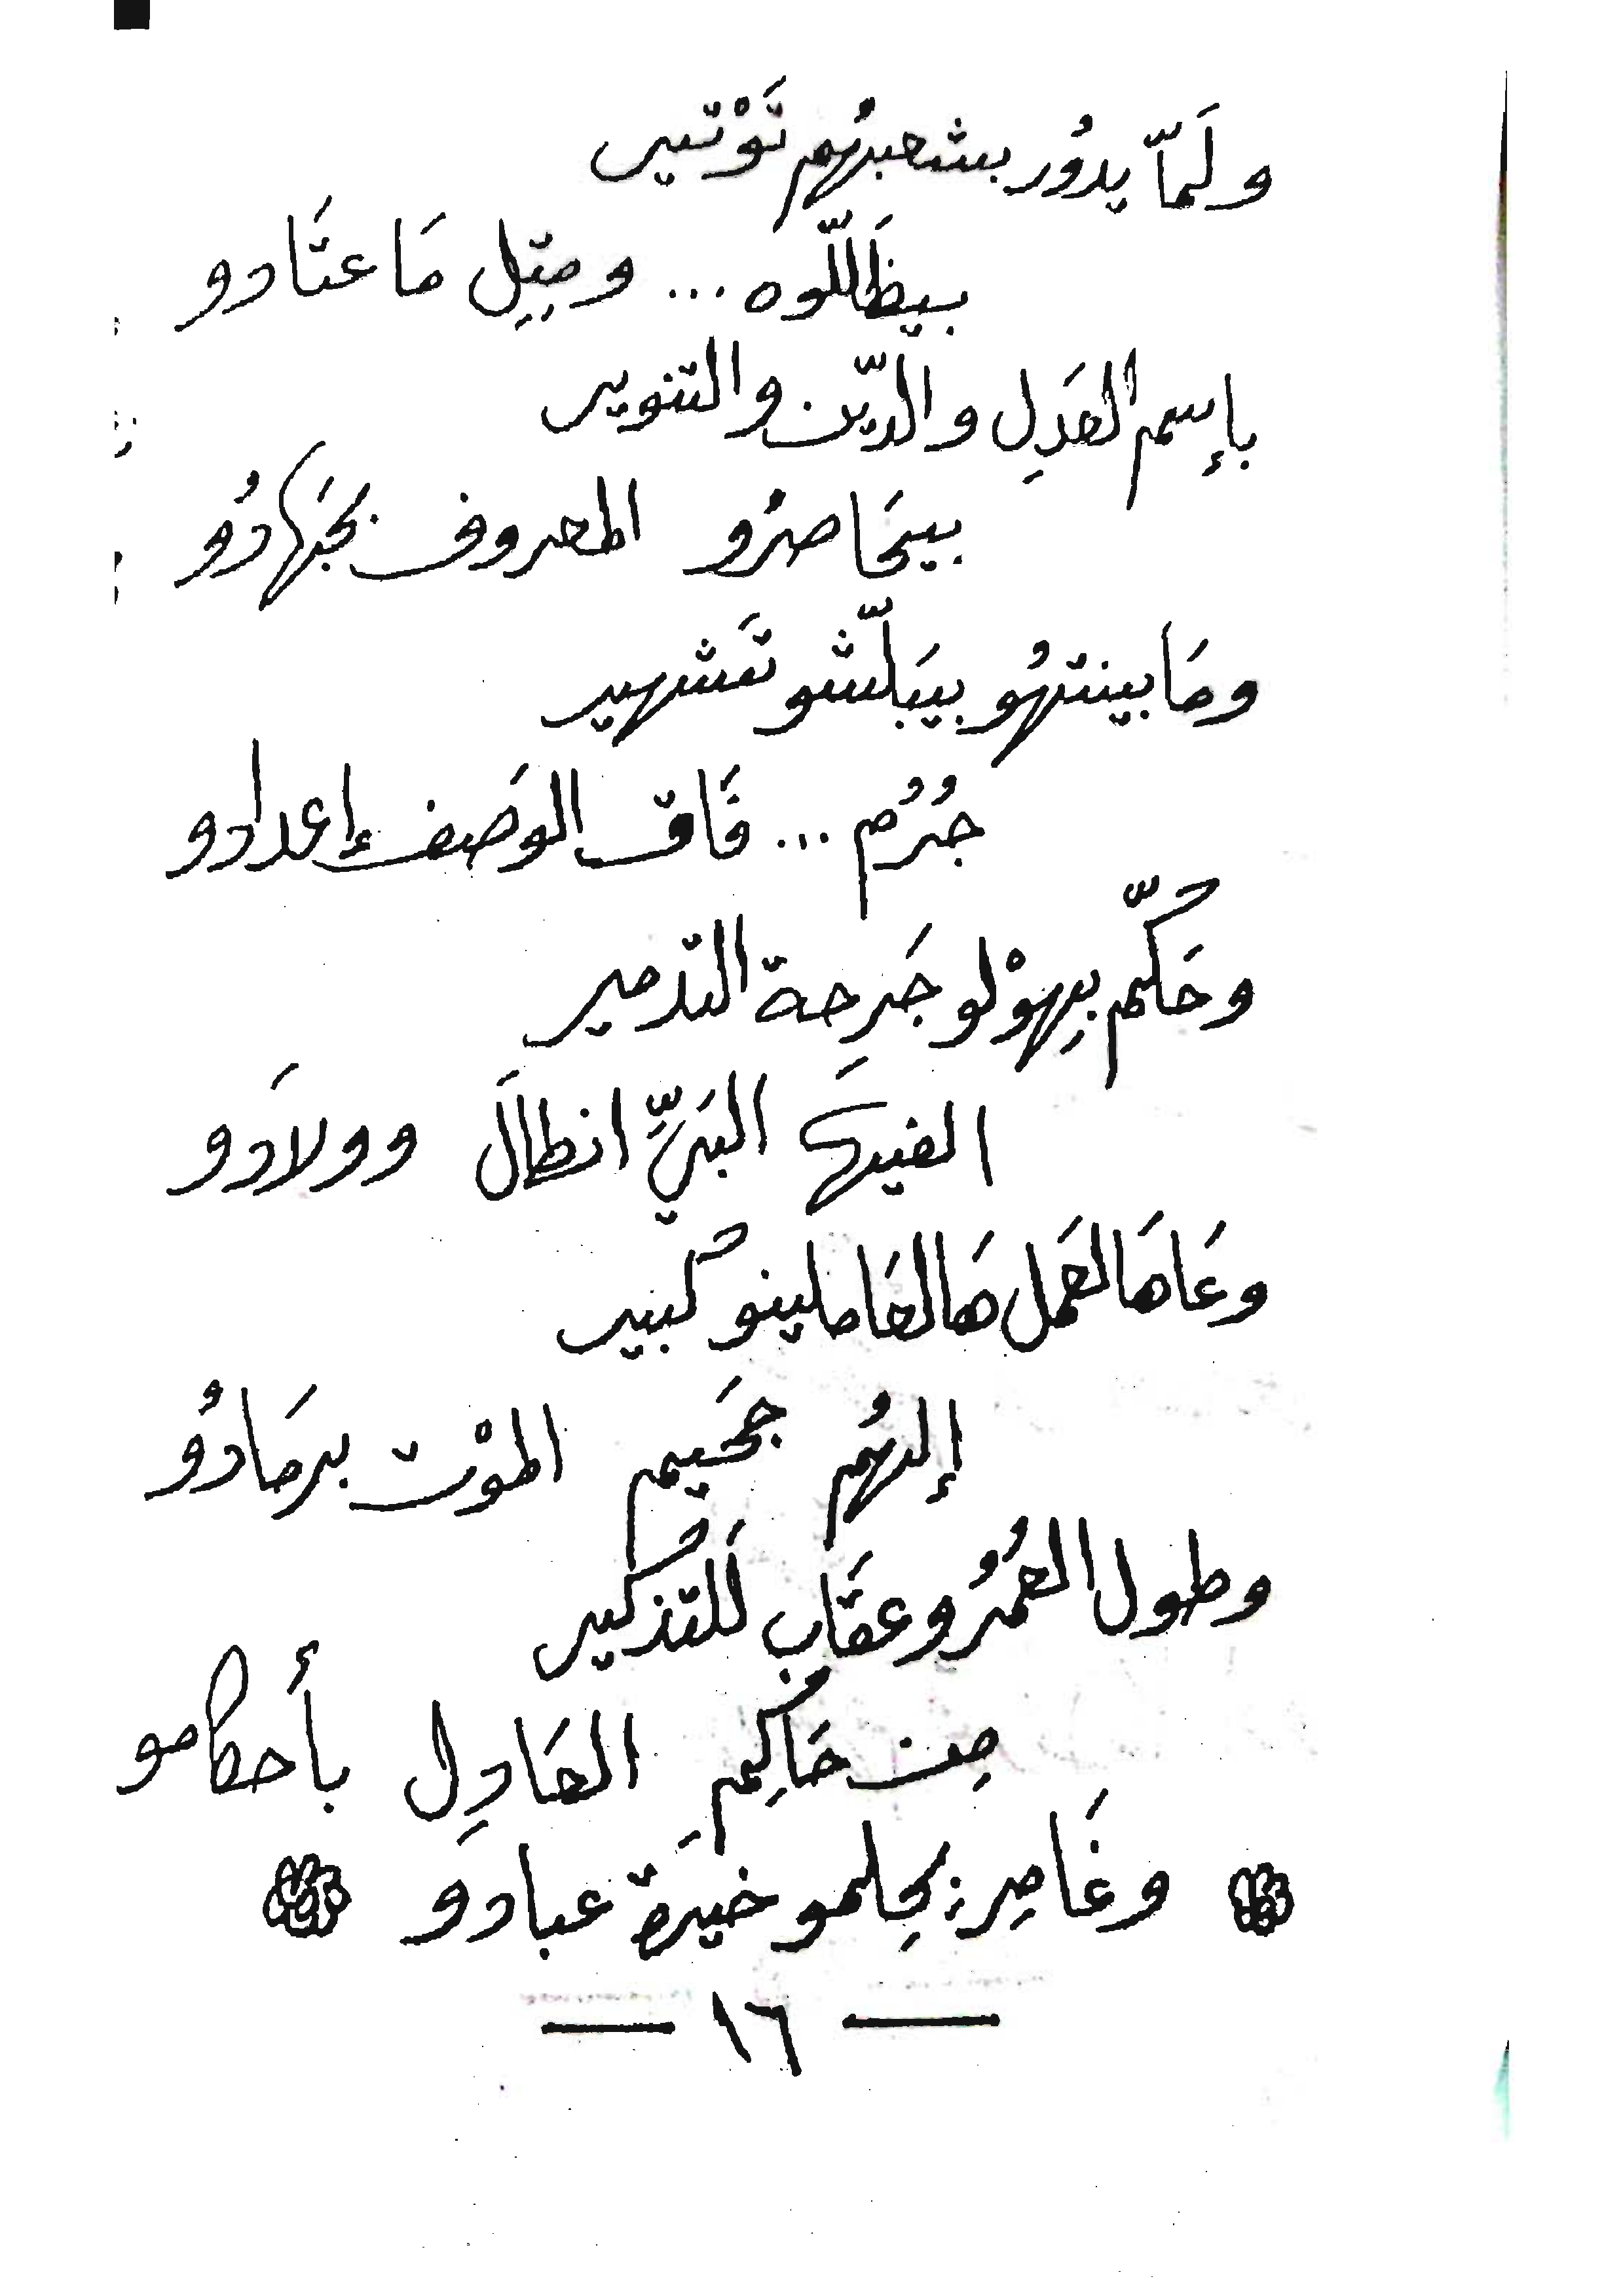 ولَمّا يدوُر بشعبهُم تَوْتير
بيظَاللّوه ... ومِتِل مَا عتَادو
بإسم العَدِل والدّين والتنوير
بيحَاصرُو المعروف بجَهادُو
ومَا بينتهُو بيبَلّشو تَشهير
جُرُم ... فَاق الوَصف إعدادو
وحَكّم بِهوْلو جَرِحة التدمير
الفيهَا البَرِيّ انطالَ وولادَو
وعَاهَالعَمل هَالعَاملينو كبير
إلهُم جَحيم الموْت برمَادُو
وطول العمُرُ وعقَاب لَلتذكير
مِن حَاكِم العَادِل بأحكامو
وغَامِر بحِلمو خيرَة عبادو
— ١٦ —